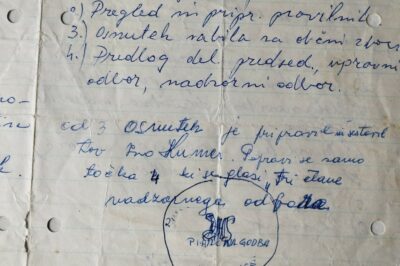 2) Pregled in pripr. pravilnik
3.) Osnutek vabila za občni zbor
4.) Predlog del. predsed., upravni
odbor, nadzorni odbor.
od 3 Osnutek je pripravil in sestavil
tov Ivo Humer. Popravi se samo
točka 4 ki se glasi, tri člane
nadzornega odbora
PIHALNA GODBA